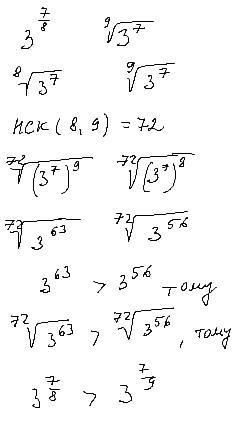 3^{7/8}   ⁹√(3^7)
⁸√(3^7)   ⁹√(3^7)
НСК(8, 9) = 72
⁷²√((3^7)^9)   ⁷²√((3^7)^8)
⁷²√(3^{63})   ⁷²√(3^{56})
3^{63} > 3^{56} тому
⁷²√(3^{63}) > ⁷²√(3^{56}), тому
3^{7/8} > 3^{7/9}